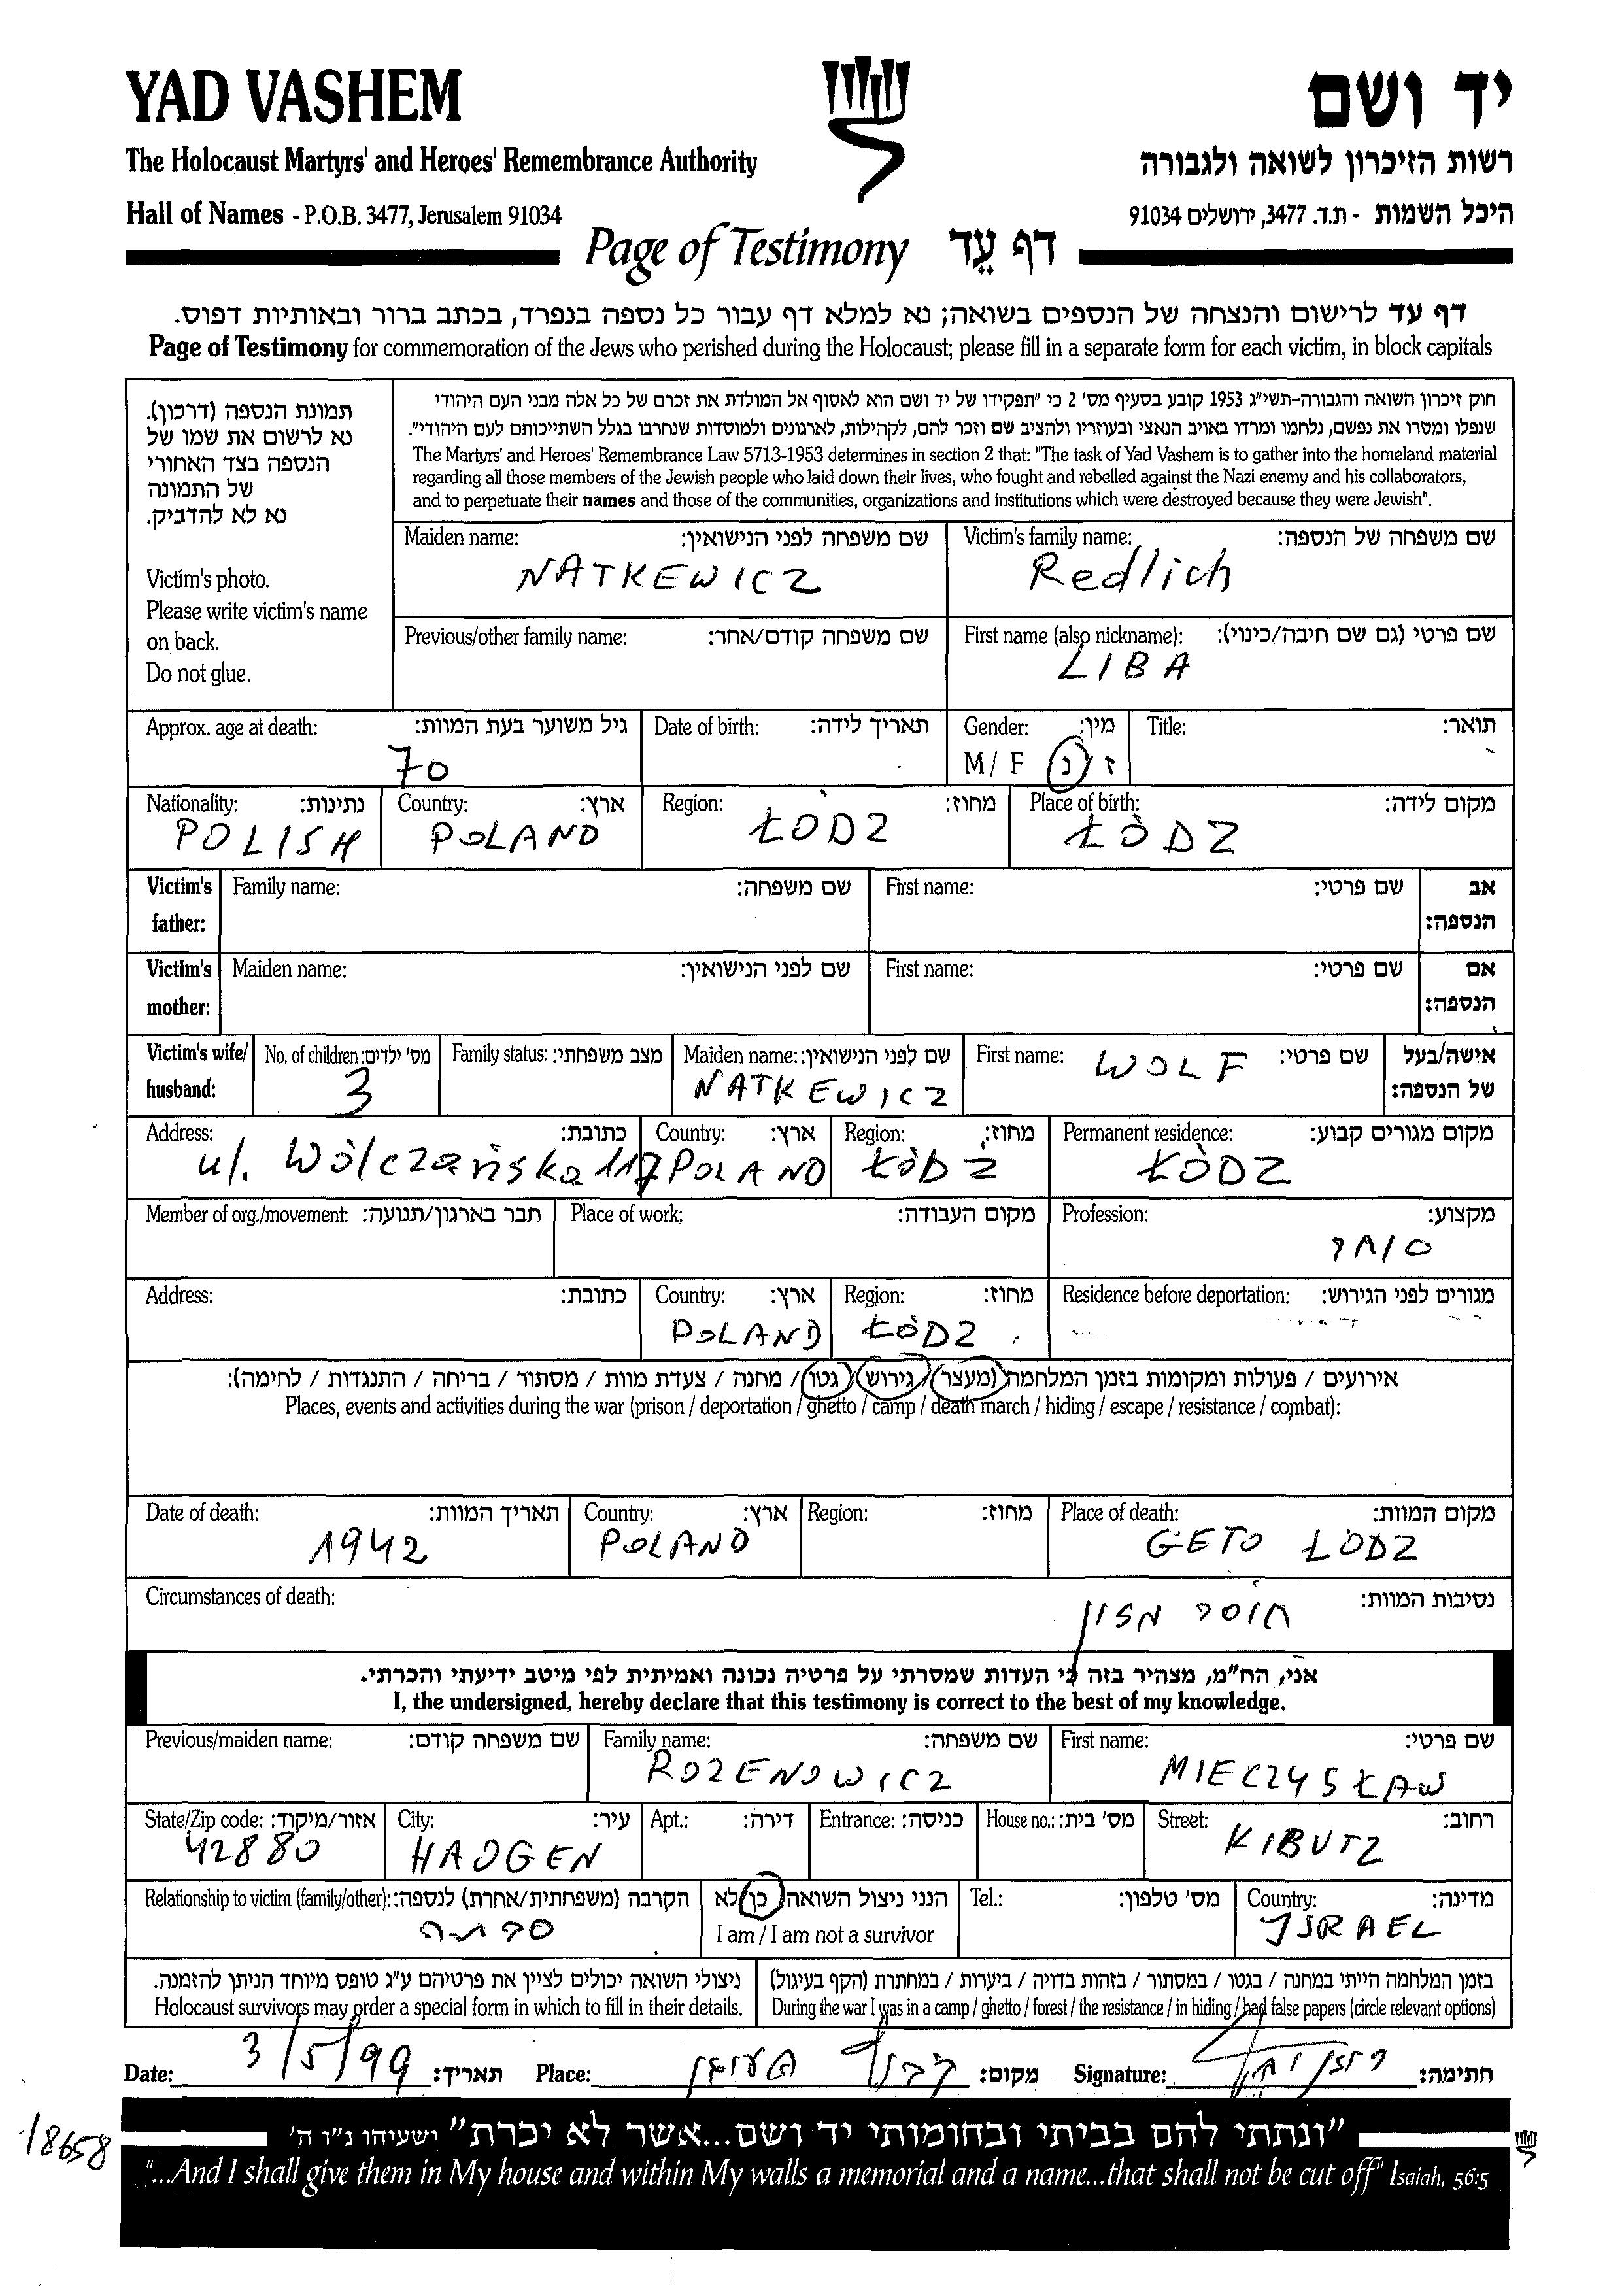 YAD VASHEM
יד ושם
The Holocaust Martyrs' and Heroes' Remembrance Authority
רשות הזיכרון לשואה ולגבורה
Hall of Names - P.O.B. 3477, Jerusalem 91034
היכל השמות - ת.ד. 3477, ירושלים 91034
Page of Testimony דף עֵד
דף עד לרישום והנצחה של הנספים בשואה; נא למלא דף עבור כל נספה בנפרד, בכתב ברור ובאותיות דפוס.
Page of Testimony for commemoration of the Jews who perished during the Holocaust; please fill in a separate form for each victim, in block capitals
תמונת הנספה (דרכון).
נא לרשום את שמו של
הנספה בצד האחורי
של התמונה
נא לא להדביק.
Victim's photo.
Please write victim's name
on back.
Do not glue.
חוק זיכרון השואה והגבורה-תשי"ג 1953 קובע בסעיף מס' 2 כי "תפקידו של יד ושם הוא לאסוף אל המולדת את זכרם של כל אלה מבני העם היהודי
שנפלו ומסרו את נפשם, נלחמו ומרדו באויב הנאצי ובעוזריו ולהציב שם וזכר להם, לקהילות, לארגונים ולמוסדות שנחרבו בגלל השתייכותם לעם היהודי".
The Martyrs' and Heroes' Remembrance Law 5713-1953 determines in section 2 that: "The task of Yad Vashem is to gather into the homeland material
regarding all those members of the Jewish people who laid down their lives, who fought and rebelled against the Nazi enemy and his collaborators,
and to perpetuate their names and those of the communities, organizations and institutions which were destroyed because they were Jewish".
Maiden name: שם משפחה לפני הנישואין:
NATKEWICZ
Victim's family name: שם משפחה של הנספה:
Redlich
Previous/other family name: שם משפחה קודם/אחר:
First name (also nickname): שם פרטי (גם שם חיבה/כינוי):
LIBA
Approx. age at death: גיל משוער בעת המוות:
70
Date of birth: תאריך לידה:
Gender: מין:
M / F ז / נ
Title: תואר:
Nationality: נתינות:
POLISH
Country: ארץ:
POLAND
Region: מחוז:
ŁÓDZ
Place of birth: מקום לידה:
ŁÓDZ
Victim's father: Family name: שם משפחה: First name: שם פרטי: אב הנספה:
Victim's mother: Maiden name: שם לפני הנישואין: First name: שם פרטי: אם הנספה:
Victim's wife/ husband:
No. of children: מס' ילדים:
3
Family status: מצב משפחתי:
Maiden name: שם לפני הנישואין:
NATKEWICZ
First name: שם פרטי:
WOLF
אישה/בעל של הנספה:
Address: כתובת:
ul. Wólczańska 117
Country: ארץ:
POLAND
Region: מחוז:
ŁÓDZ
Permanent residence: מקום מגורים קבוע:
ŁÓDZ
Member of org./movement: חבר בארגון/תנועה:
Place of work: מקום העבודה:
Profession: מקצוע:
סוחר
Address: כתובת:
Country: ארץ:
POLAND
Region: מחוז:
ŁÓDZ
Residence before deportation: מגורים לפני הגירוש:
אירועים / פעולות ומקומות בזמן המלחמה (מעצר / גירוש / גטו / מחנה / צעדת מוות / מסתור / בריחה / התנגדות / לחימה):
Places, events and activities during the war (prison / deportation / ghetto / camp / death march / hiding / escape / resistance / combat):
Date of death: תאריך המוות:
1942
Country: ארץ:
POLAND
Region: מחוז:
Place of death: מקום המוות:
GETO ŁÓDZ
Circumstances of death: נסיבות המוות:
חוסר מזון
אני, הח"מ, מצהיר בזה כי העדות שמסרתי על פרטיה נכונה ואמיתית לפי מיטב ידיעתי והכרתי.
I, the undersigned, hereby declare that this testimony is correct to the best of my knowledge.
Previous/maiden name: שם משפחה קודם:
Family name: שם משפחה:
ROZENOWICZ
First name: שם פרטי:
MIECZYSŁAW
State/Zip code: אזור/מיקוד:
42880
City: עיר:
HAOGEN
Apt.: דירה:
Entrance: כניסה:
House no.: מס' בית:
Street: רחוב:
KIBUTZ
Relationship to victim (family/other): הקרבה (משפחתית/אחרת) לנספה:
סבתה
הנני ניצול השואה כן / לא
I am / I am not a survivor
Tel.: מס' טלפון:
Country: מדינה:
ISRAEL
ניצולי השואה יכולים לציין את פרטיהם ע"ג טופס מיוחד הניתן להזמנה.
Holocaust survivors may order a special form in which to fill in their details.
בזמן המלחמה הייתי במחנה / בגטו / במסתור / בזהות בדויה / ביערות / במחתרת (הקף בעיגול)
During the war I was in a camp / ghetto / forest / the resistance / in hiding / had false papers (circle relevant options)
Date: 3/5/99 תאריך: Place: קבוץ העוגן מקום: Signature: חתימה:
"ונתתי להם בביתי ובחומותי יד ושם...אשר לא יכרת" ישעיהו נ"ו ה'
"...And I shall give them in My house and within My walls a memorial and a name...that shall not be cut off" Isaiah, 56:5
18658